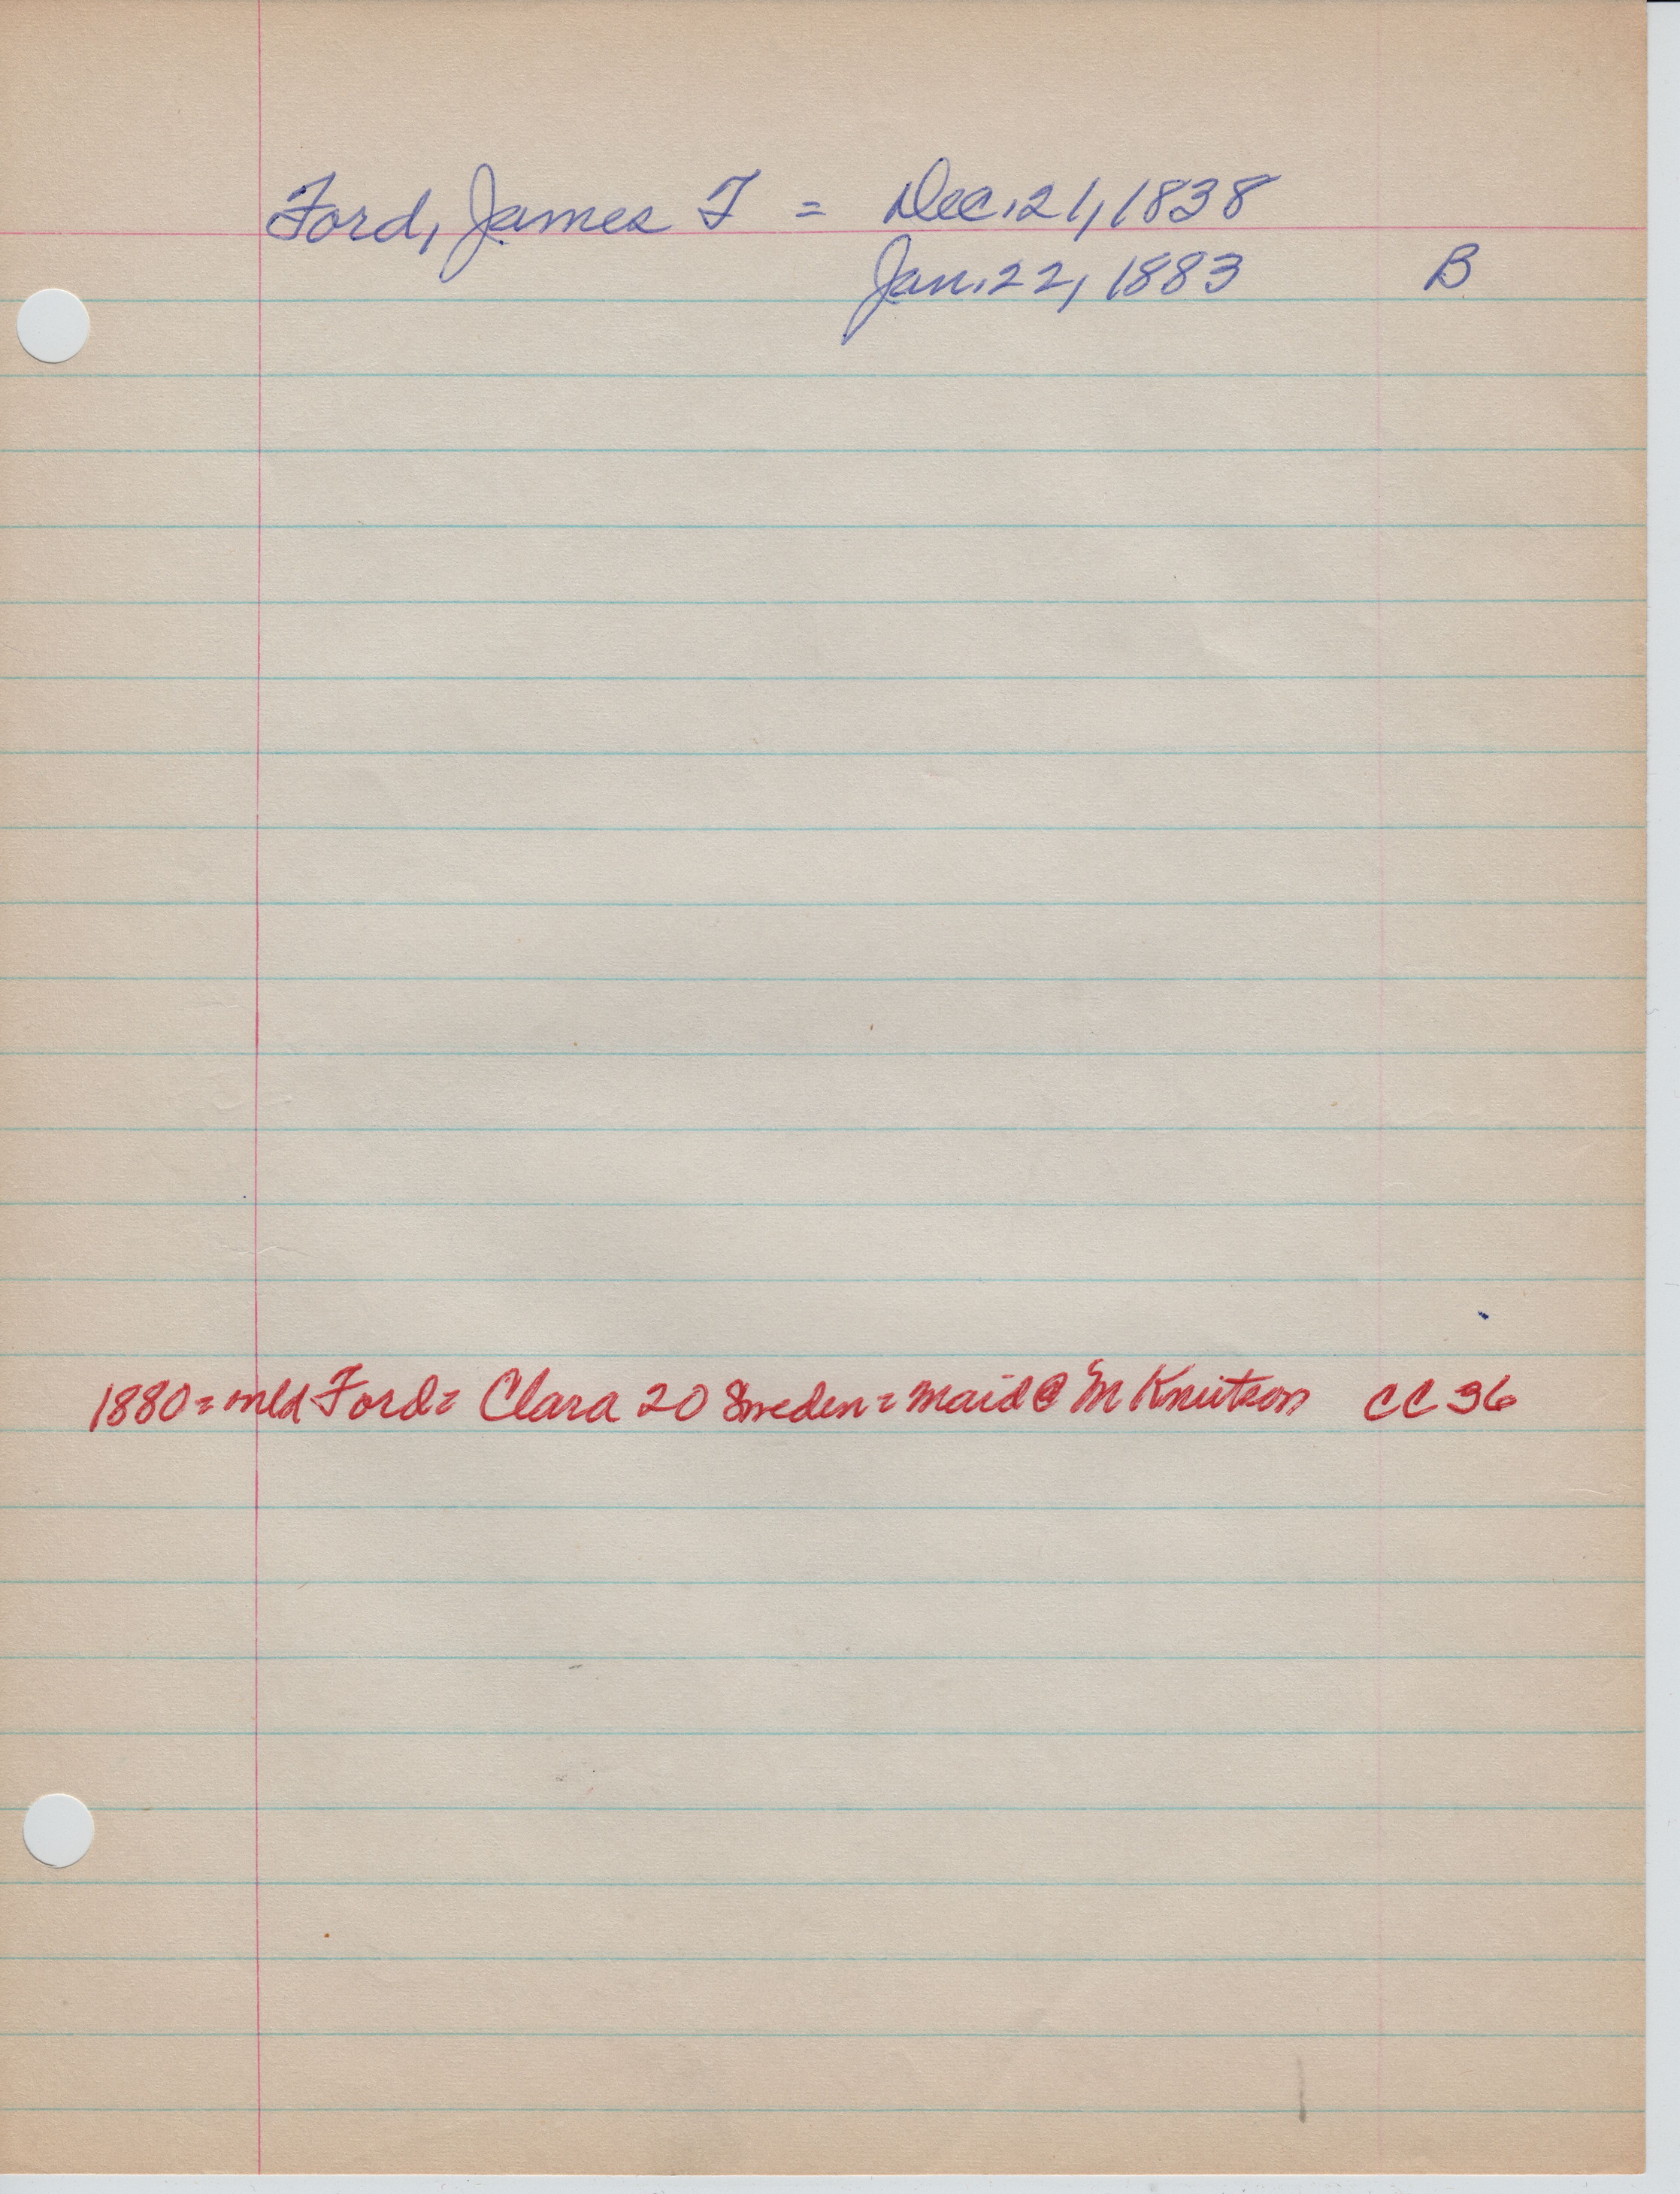 Ford, James F = Dec. 21, 1838
Jan. 22, 1883 B
1880 = mld Ford = Clara 20 Sweden = maid @ M Knutson CC 36